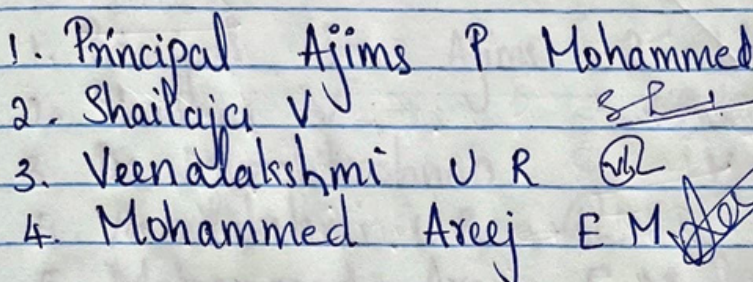 1. Principal Ajims P Mohammed
2. Shailaja V
3. Veenalakshmi U R
4. Mohammed Areej E M